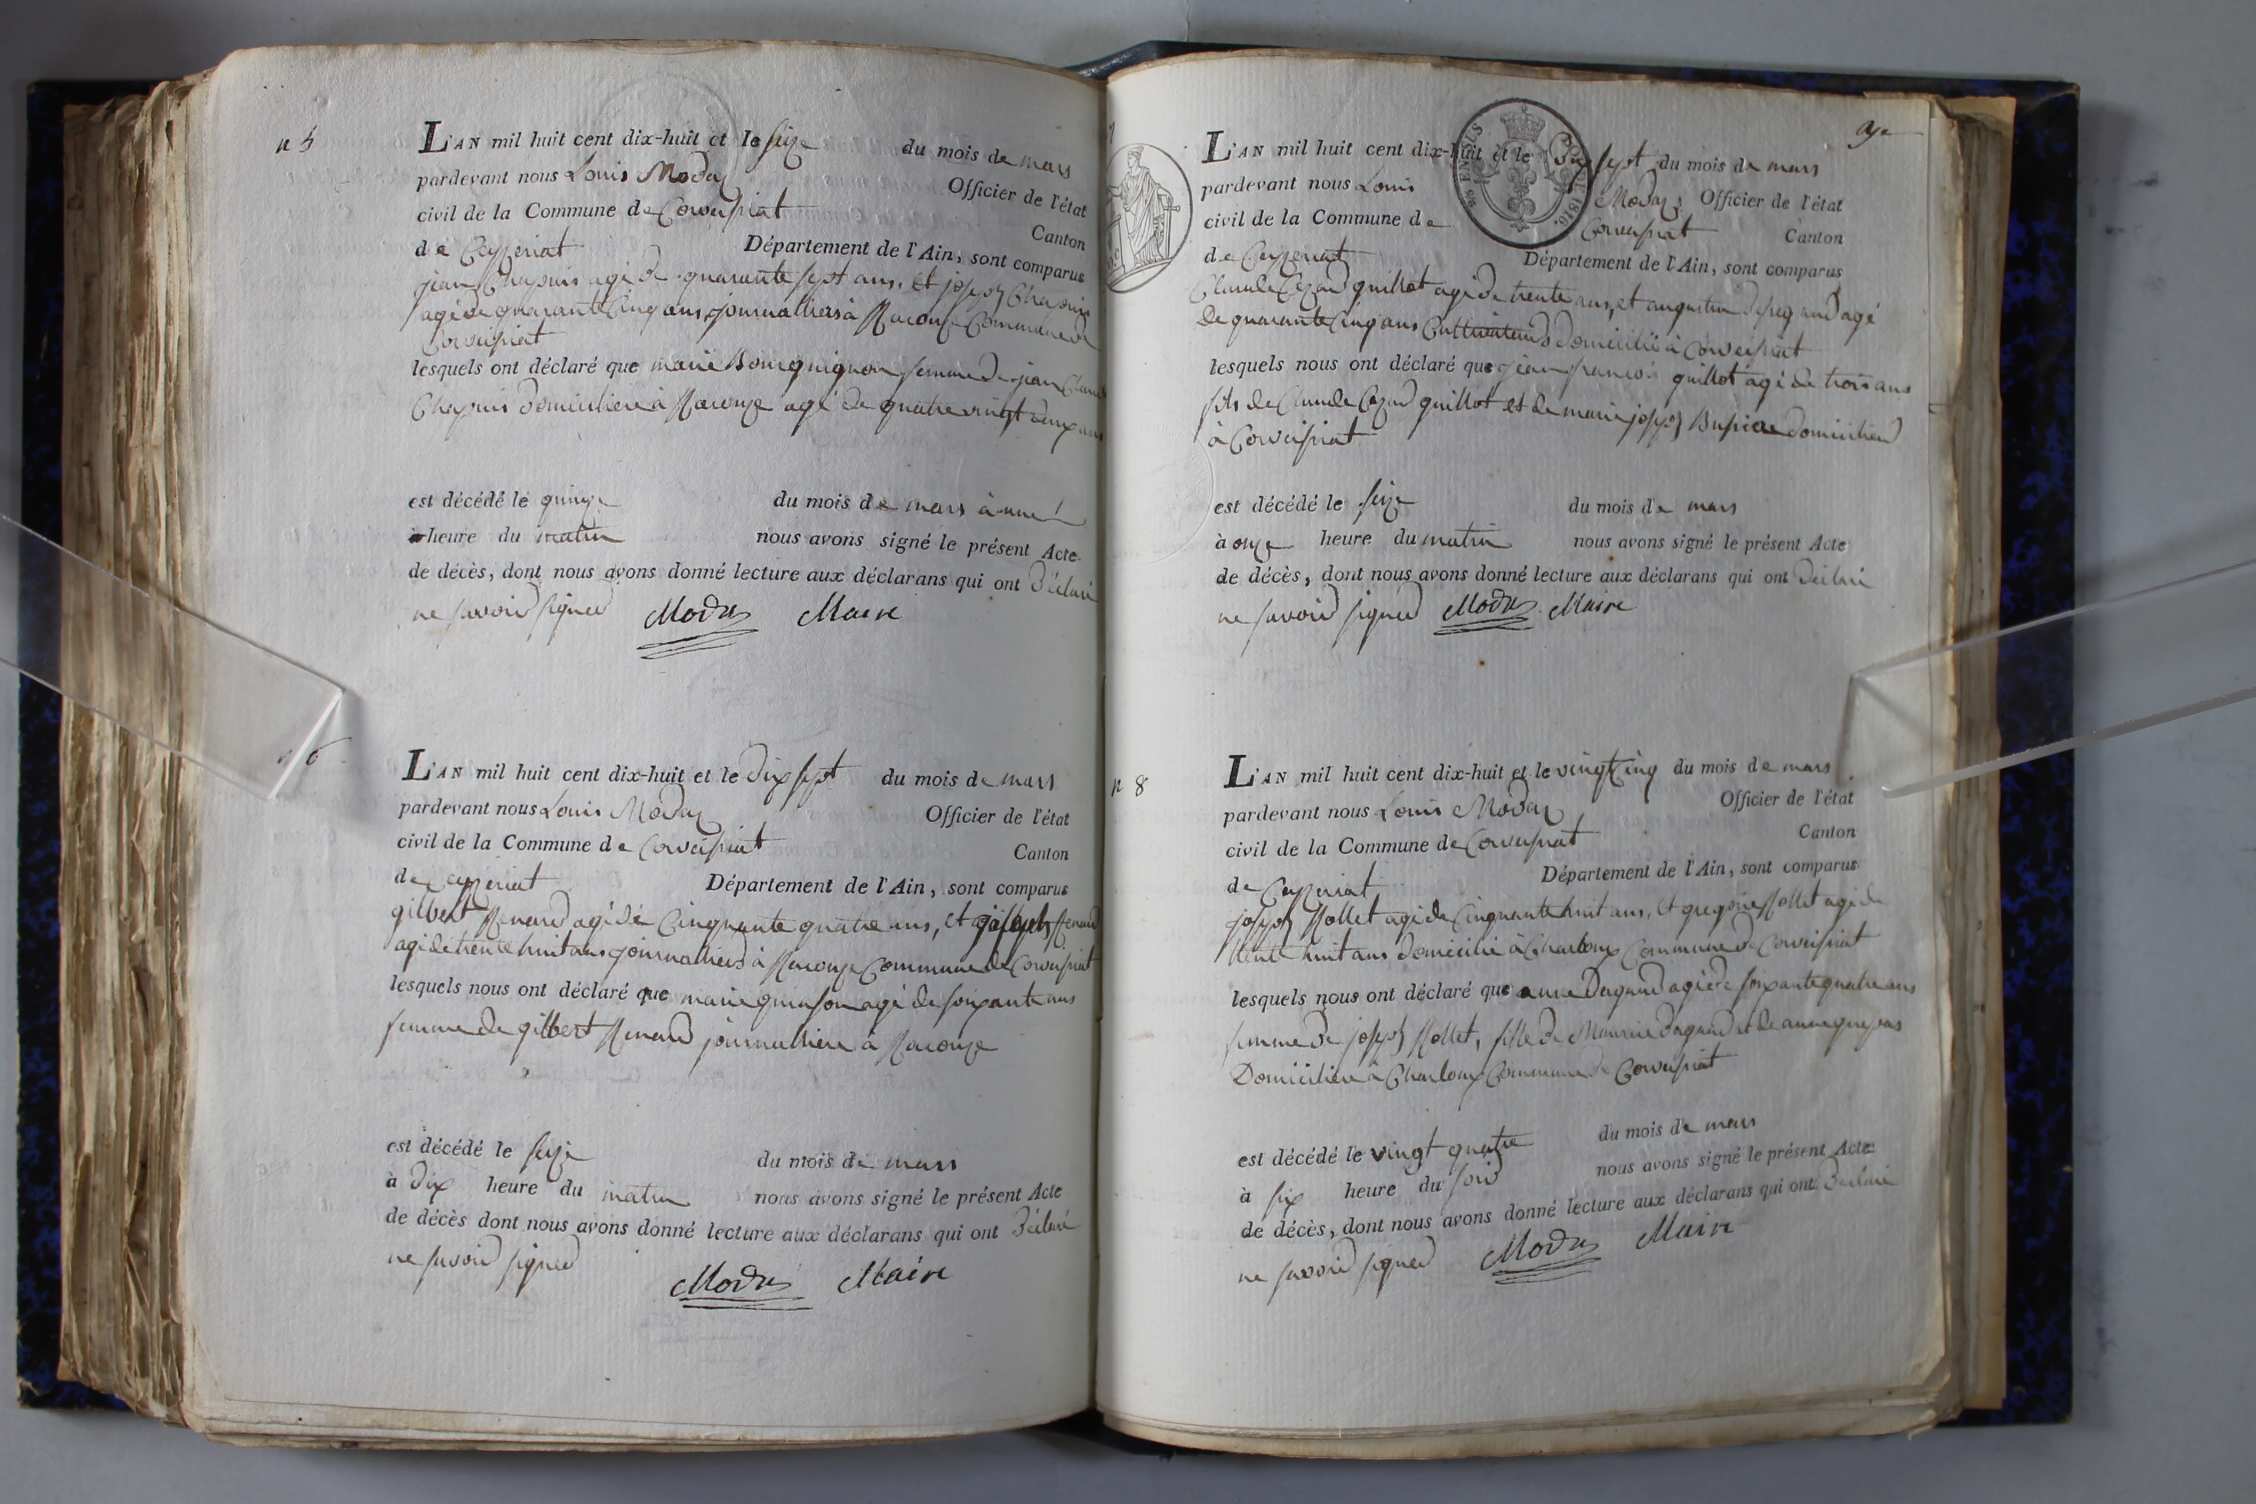 n 5
L'AN mil huit cent dix-huit et le seize du mois de mars
pardevant nous Louis Moday Officier de l'état
civil de la Commune de Corveissiat Canton
de Ceyzeriat Département de l'Ain, sont comparus
jean Chapuis agé de quarante sept ans, et joseph Chapuis
agé de quarante cinq ans journalliers à Racouze Commune de
Corveissiat
lesquels ont déclaré que marie Bourguignon femme de jean Claude
Chapuis domiciliere à Racouze agé de quatre vingt deux ans
est décédé le quinze du mois de mars à une
heure du matin nous avons signé le présent Acte
de décès, dont nous avons donné lecture aux déclarans qui ont déclaré
ne savoir signer Moday Maire
n 6
L'AN mil huit cent dix-huit et le dix sept du mois de mars
pardevant nous Louis Moday Officier de l'état
civil de la Commune de Corveissiat Canton
de Ceyzeriat Département de l'Ain, sont comparus
gilbert Renard agé de Cinquante quatre ans, et joseph Renard
agé de trente huit ans journalliers à Racouze Commune de Corveissiat
lesquels nous ont déclaré que marie agé de soixante ans
femme de gilbert Renard journalliere à Racouze
est décédé le seize du mois de mars
à dix heure du matin nous avons signé le présent Acte
de décès dont nous avons donné lecture aux déclarans qui ont déclaré
ne savoir signer
Moday Maire
7
L'AN mil huit cent dix-huit et le dix sept du mois de mars
pardevant nous Louis Moday Officier de l'état
civil de la Commune de Corveissiat Canton
de Ceyzeriat Département de l'Ain, sont comparus
Claude Cezar guillot agé de trente ans, et augustin agé
de quarante cinq ans Cultivateurs domicilié à Corveissiat
lesquels nous ont déclaré que jean francois guillot agé de trois ans
fils de Claude Cezar guillot et de marie joseph domicilier
à Corveissiat
est décédé le seize du mois de mars
à onze heure du matin nous avons signé le présent Acte
de décès, dont nous avons donné lecture aux déclarans qui ont déclaré
ne savoir signer Moday Maire
n 8
L'AN mil huit cent dix-huit et le vingt cinq du mois de mars
pardevant nous Louis Moday Officier de l'état
civil de la Commune de Corveissiat Canton
de Ceyzeriat Département de l'Ain, sont comparus
joseph Rollet agé de Cinquante huit ans, et gregoire Rollet agé de
trente huit ans domicilié à Charloup Commune de Corveissiat
lesquels nous ont déclaré que anne Dagand agé de soixante quatre ans
femme de joseph Rollet, fille de Maurice Dagand et de anne
Domiciliere à Charloup Commune de Corveissiat
est décédé le vingt quatre du mois de mars
à six heure du soir nous avons signé le présent Acte
de décès, dont nous avons donné lecture aux déclarans qui ont déclaré
ne savoir signer Moday Maire